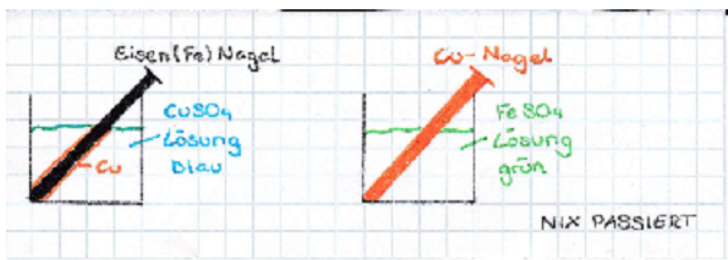 Eisen(Fe) Nagel
CuSO4
Lösung
blau
Cu
Cu-Nagel
FeSO4
Lösung
grün
NIX PASSIERT